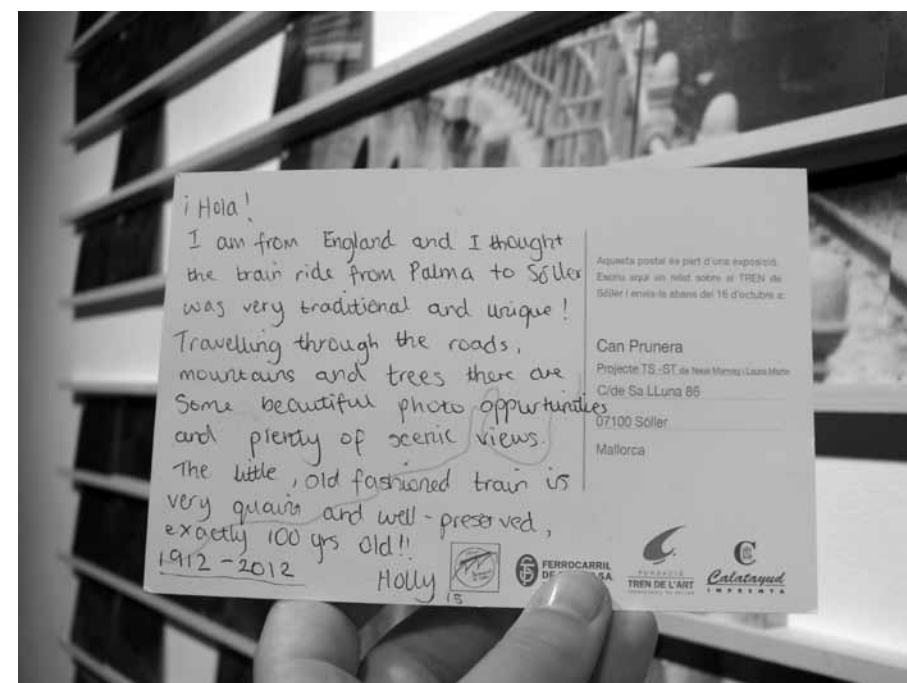 ¡ Hola!
I am from England and I thought
the train ride from Palma to Sóller
was very traditional and unique!
Travelling through the roads,
mountains and trees there are
Some beautiful photo oppurtunities
and plenty of scenic views.
The little, old fashioned train is
very quaint and well-preserved,
exactly 100 yrs old!!
1912-2012
Holly
15
Aquesta postal és part d'una exposició.
Escriu aquí un relat sobre el TREN de
Sóller i envia-la abans del 16 d'octubre a:
Can Prunera
Projecte TS-ST de
C/de Sa LLuna 86
07100 Sóller
Mallorca
FERROCARRIL
FUNDACIÓ
TREN DE L'ART
Calatayud
IMPREMTA